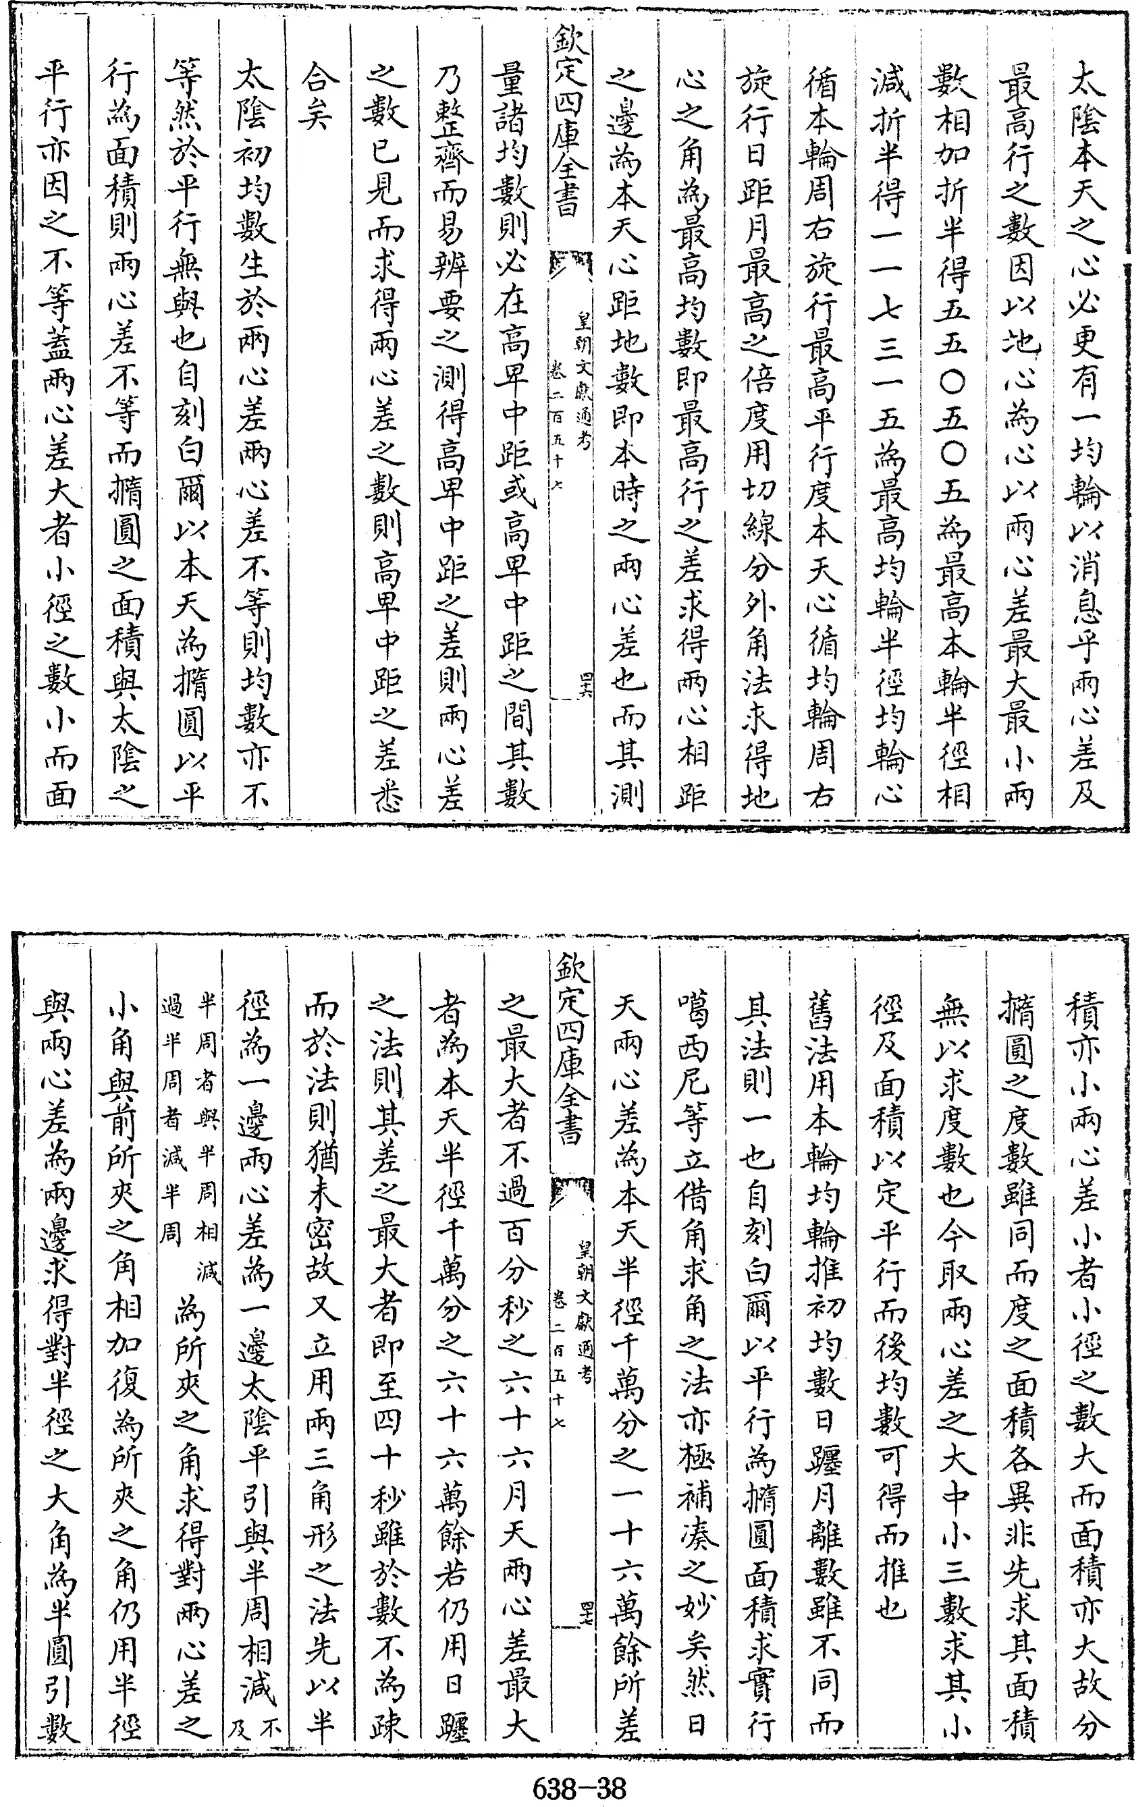 太陰本天之心必更有一均輪以消息乎兩心差及
最高行之數因以地心為心以兩心差最大最小兩
數相加折半得五五〇五〇五為最高本輪半徑相
減折半得一一七三一五為最高均輪半徑均輪心
循本輪周右旋行最高平行度本天心循均輪周右
旋行日距月最高之倍度用切線分外角法求得地
心之角為最高均數即最高行之差求得兩心相距
之邊為本天心距地數即本時之兩心差也而其測
欽定四庫全書
皇朝文獻通考
卷二百五十七
四六
量諸均數則必在高卑中距或高卑中距之間其數
乃整齊而易辨要之測得高卑中距之差則兩心差
之數已見而求得兩心差之數則高卑中距之差悉
合矣
太陰初均數生於兩心差兩心差不等則均數亦不
等然於平行無與也自刻白爾以本天為撱圓以平
行為面積則兩心差不等而撱圓之面積與太陰之
平行亦因之不等蓋兩心差大者小徑之數小而面
積亦小兩心差小者小徑之數大而面積亦大故分
撱圓之度數雖同而度之面積各異非先求其面積
無以求度數也今取兩心差之大中小三數求其小
徑及面積以定平行而後均數可得而推也
舊法用本輪均輪推初均數日躔月離數雖不同而
其法則一也自刻白爾以平行為撱圓面積求實行
噶西尼等立借角求角之法亦極補湊之妙矣然日
天兩心差為本天半徑千萬分之一十六萬餘所差
欽定四庫全書
皇朝文獻通考
卷二百五十七
四七
之最大者不過百分秒之六十六月天兩心差最大
者為本天半徑千萬分之六十六萬餘若仍用日躔
之法則其差之最大者即至四十秒雖於數不為疎
而於法則猶未密故又立用兩三角形之法先以半
徑為一邊兩心差為一邊太陰平引與半周相減不及
半周者與半周相減過半周者減半周為所夾之角求得對兩心差之
小角與前所夾之角相加復為所夾之角仍用半徑
與兩心差為兩邊求得對半徑之大角為半圓引數
638-38